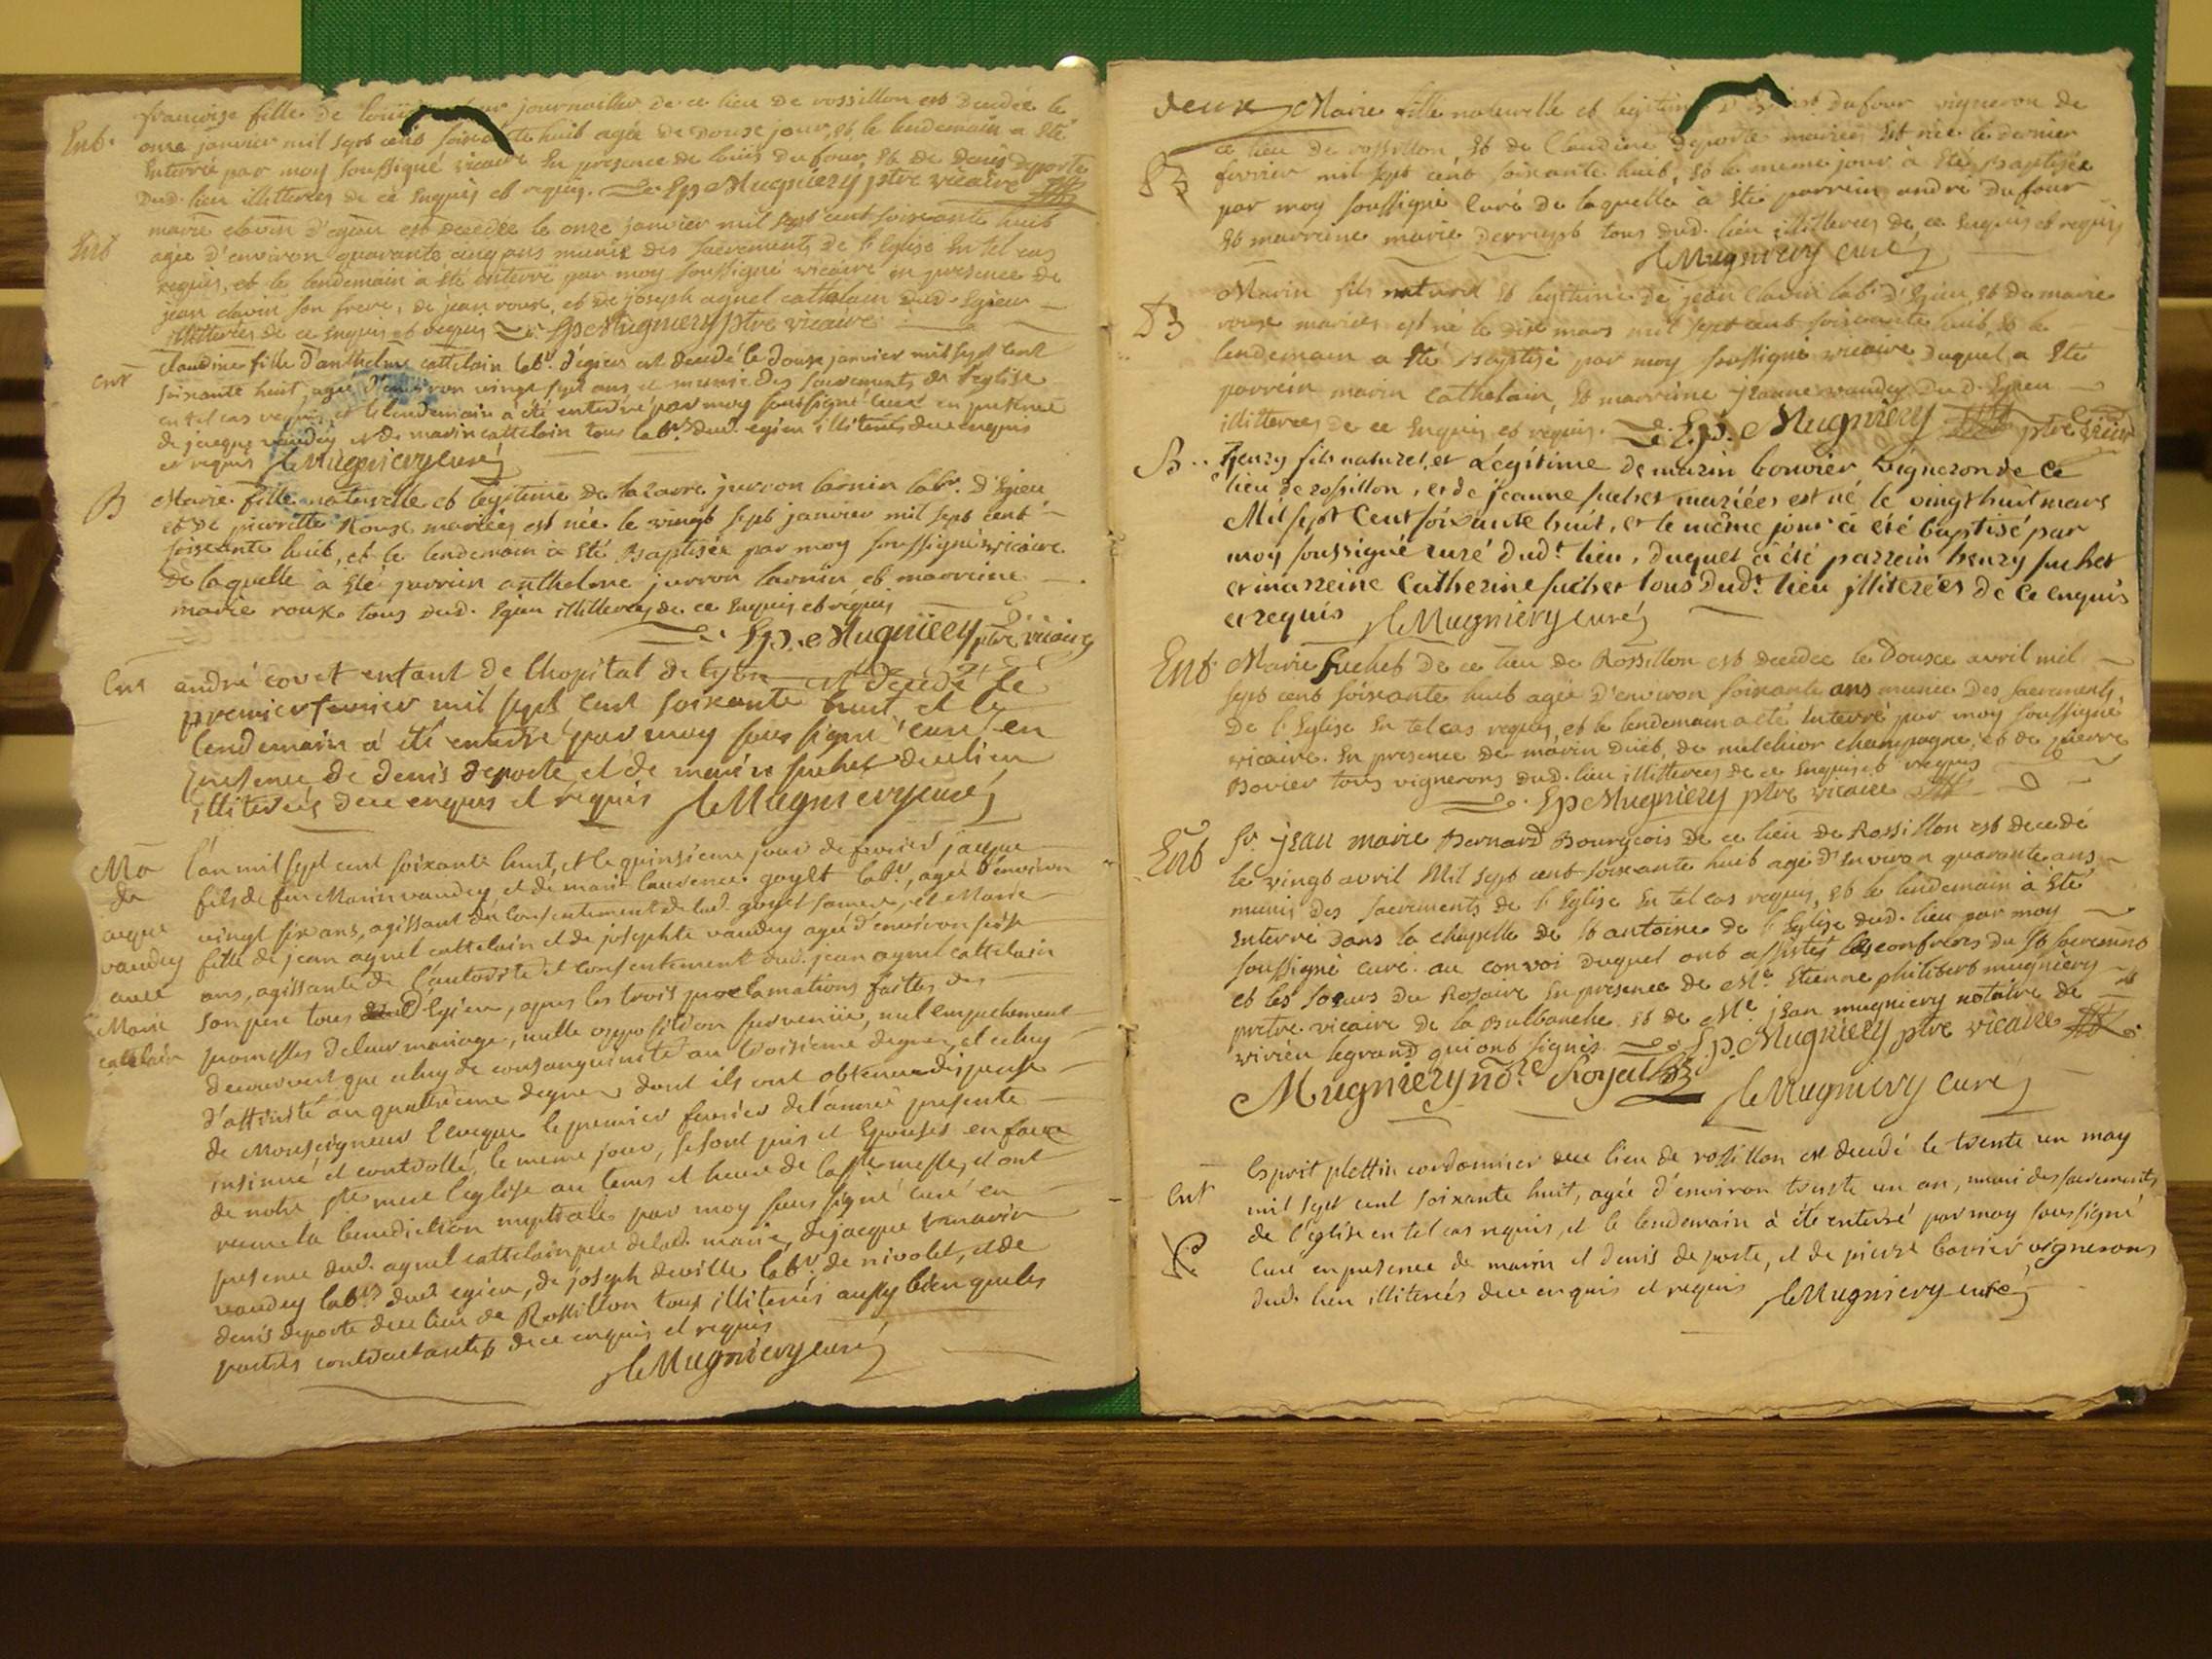 francoise fille de louis dufour journaillier de ce lieu de rossillon est decedée le
Ent. onze janvier mil sept cent soixante huit agée de douse jour, et le lendemain a été
enterrée par moy soussigné vicaire En presence de louis dufour, et de denis deporte
dud. lieu illitterés de ce enquis et requis. Ep Mugniery ptre vicaire
marie clavin d'egieu est decedée le onze janvier mil sept cent soixante huit
Ent agée d'environ quarante cinq ans munie des sacrements de l'Eglise En tel cas
requis, et le lendemain à été enterré par moy soussigné vicaire en presence de
jean clavin son frere, de jean roux, et de joseph agnel cattelain dud. Egieu
illitterés de ce enquis et requis Ep Mugniery ptre vicaire
Claudine fille d'anthelme cattelain labr. d'egieu est decedé le douse janvier mil sept cent
ent soixante huit, agée d'environ vingt sept ans et munie des sacrements de l'eglise
en tel cas requis, et le lendemain a été enterré par moy soussigné curé en presence
de jacque vaudey et de marin cattelain tous labrs. dud. egieu illiterés de ce enquis
et requis le Mugniery curé
B Marie fille naturelle et legitime de lazare jurron larnin labr. d'Egieu
et de pierrette Rouse mariées est née le vingt sept janvier mil sept cent
soixante huit, et le lendemain à été Baptisée par moy soussigné vicaire
de laquelle à été parrein anthelme jurron larnin et marreine
marie roux tous dud. Egieu illitterés de ce enquis et requis
Ep. Mugniery ptre vicaire
ent andré covet enfant de l'hopital de lyon est decedé le
premier fevrier mil sept cent soixante huit et le
lendemain à été enterré par moy soussigné curé en
presence de denis deporte et de marin suchet de ce lieu
illiterés de ce enquis et requis le Mugniery curé
Ma l'an mil sept cent soixante huit, et le quinsieme jour de fevrier jacque
de fils de feu Marin vaudey et de marie laurence goyet labr, agé d'environ
acque vingt six ans, agissant du consentement de lad. goyet sa mere, et Marie
vaudey fille de jean agnel cattelain et de josephte vaudey agé d'environ seise
avec ans, agissante de l'autorité et consentement dud. jean agnel cattelain
Marie son pere tous d'Egieu, apres les trois proclamations faites des
cattelain promesses de leur mariage, nulle opposition survenüe, nul empechement
decouvert que celuy de consanguinité au troisieme degrez, et celuy
d'affinité au quatrieme degrez dont ils ont obtenu dispense
de Monseigneur l'eveque le premier fevrier de l'année presente
insinué et controllé, le meme jour, se sont pris et Epousés en face
de notre ste mere l'eglise au tems et heure de la ste messe, et ont
recu la benediction nuptiale par moy soussigné curé en
presence dud. agnel cattelain pere de lad. marie, de jacque et marin
vaudey labrs dud egieu, de joseph deville labr. de nivolet, et de
denis deporte de ce lieu de Rossillon tous illiterés aussy bien que les
parties contractantes de ce enquis et requis
le Mugniery curé
deux Marie fille naturelle et legitime dufour vigneron de
ce lieu de rossillon et de Claudine deporte mariées est née le dernier
B fevrier mil sept cent soixante huit, et le meme jour à été Baptisée
par moy soussigné Curé de laquelle à été parrein andré dufour
et marreine marie derriept tous dud. lieu illitterés de ce enquis et requis
le Mugniery curé
Marin fils naturel et legitime de jean clavin labr d'Egieu, et de marie
B rouse mariées est né le dix mars mil sept cent soixante huit, et le
lendemain a été Baptisé par moy soussigné vicaire duquel a été
parrein marin Cathelain, et marreine jeanne vaudey dud. Egieu
illitterés de ce enquis et requis. Ep. Mugniery ptre vicaire
B.. henry fils naturel, et Legitime de marin bouvier vigneron de ce
lieu de rossillon, et de jeanne suchet mariées est né le vingt huit mars
Mil sept Cent soixante huit, et le même jour à été baptisé par
moy soussigné curé dudt. lieu, duquel à été parrein henry suchet
et marreine Catherine suchet tous dudt. lieu illiterées de ce enquis
et requis le Mugniery curé
Ent. Marie Suchet de ce lieu de Rossillon est decedée le douse avril mil
sept cent soixante huit agée d'environ soixante ans munie des sacrements
de l'Eglise En tel cas requis, et le lendemain a été enterré par moy soussigné
vicaire. En presence de marin duet, de melchior Champagne, et de pierre
Bovier tous vignerons dud. lieu illitterés de ce enquis et requis
Ep Mugniery ptre vicaire
Ent Sr. jean marie Bernard Bourgeois de ce lieu de Rossillon est decedé
le vingt avril Mil sept cent soixante huit agé d'environ quarante ans
munis des sacrements de l'Eglise En tel cas requis, et le lendemain à été
enterré dans la chapelle de st antoine de l'Eglise dud. lieu par moy
soussigné curé. au convoi duquel ont assistés les confreres du st sacrement
et les soeurs du Rosaire En presence de Mre. Etienne philibert mugniery
pretre vicaire de la Balbanche et de Me jean mugniery notaire de
virieu legrand qui ont signés. Ep. Mugniery ptre vicaire
Mugniery nore. Royal le Mugniery curé
Esprit plettin cordonnier de ce lieu de rossillon est decedé le trente un may
ent mil sept cent soixante huit, agée d'environ trente un an, muni des sacrements
de l'eglise en tel cas requis, et le lendemain à été enterré par moy soussigné
curé en presence de marin et denis deporte, et de pierre bovier vignerons
dud. lieu illiterés de ce enquis et requis le Mugniery curé